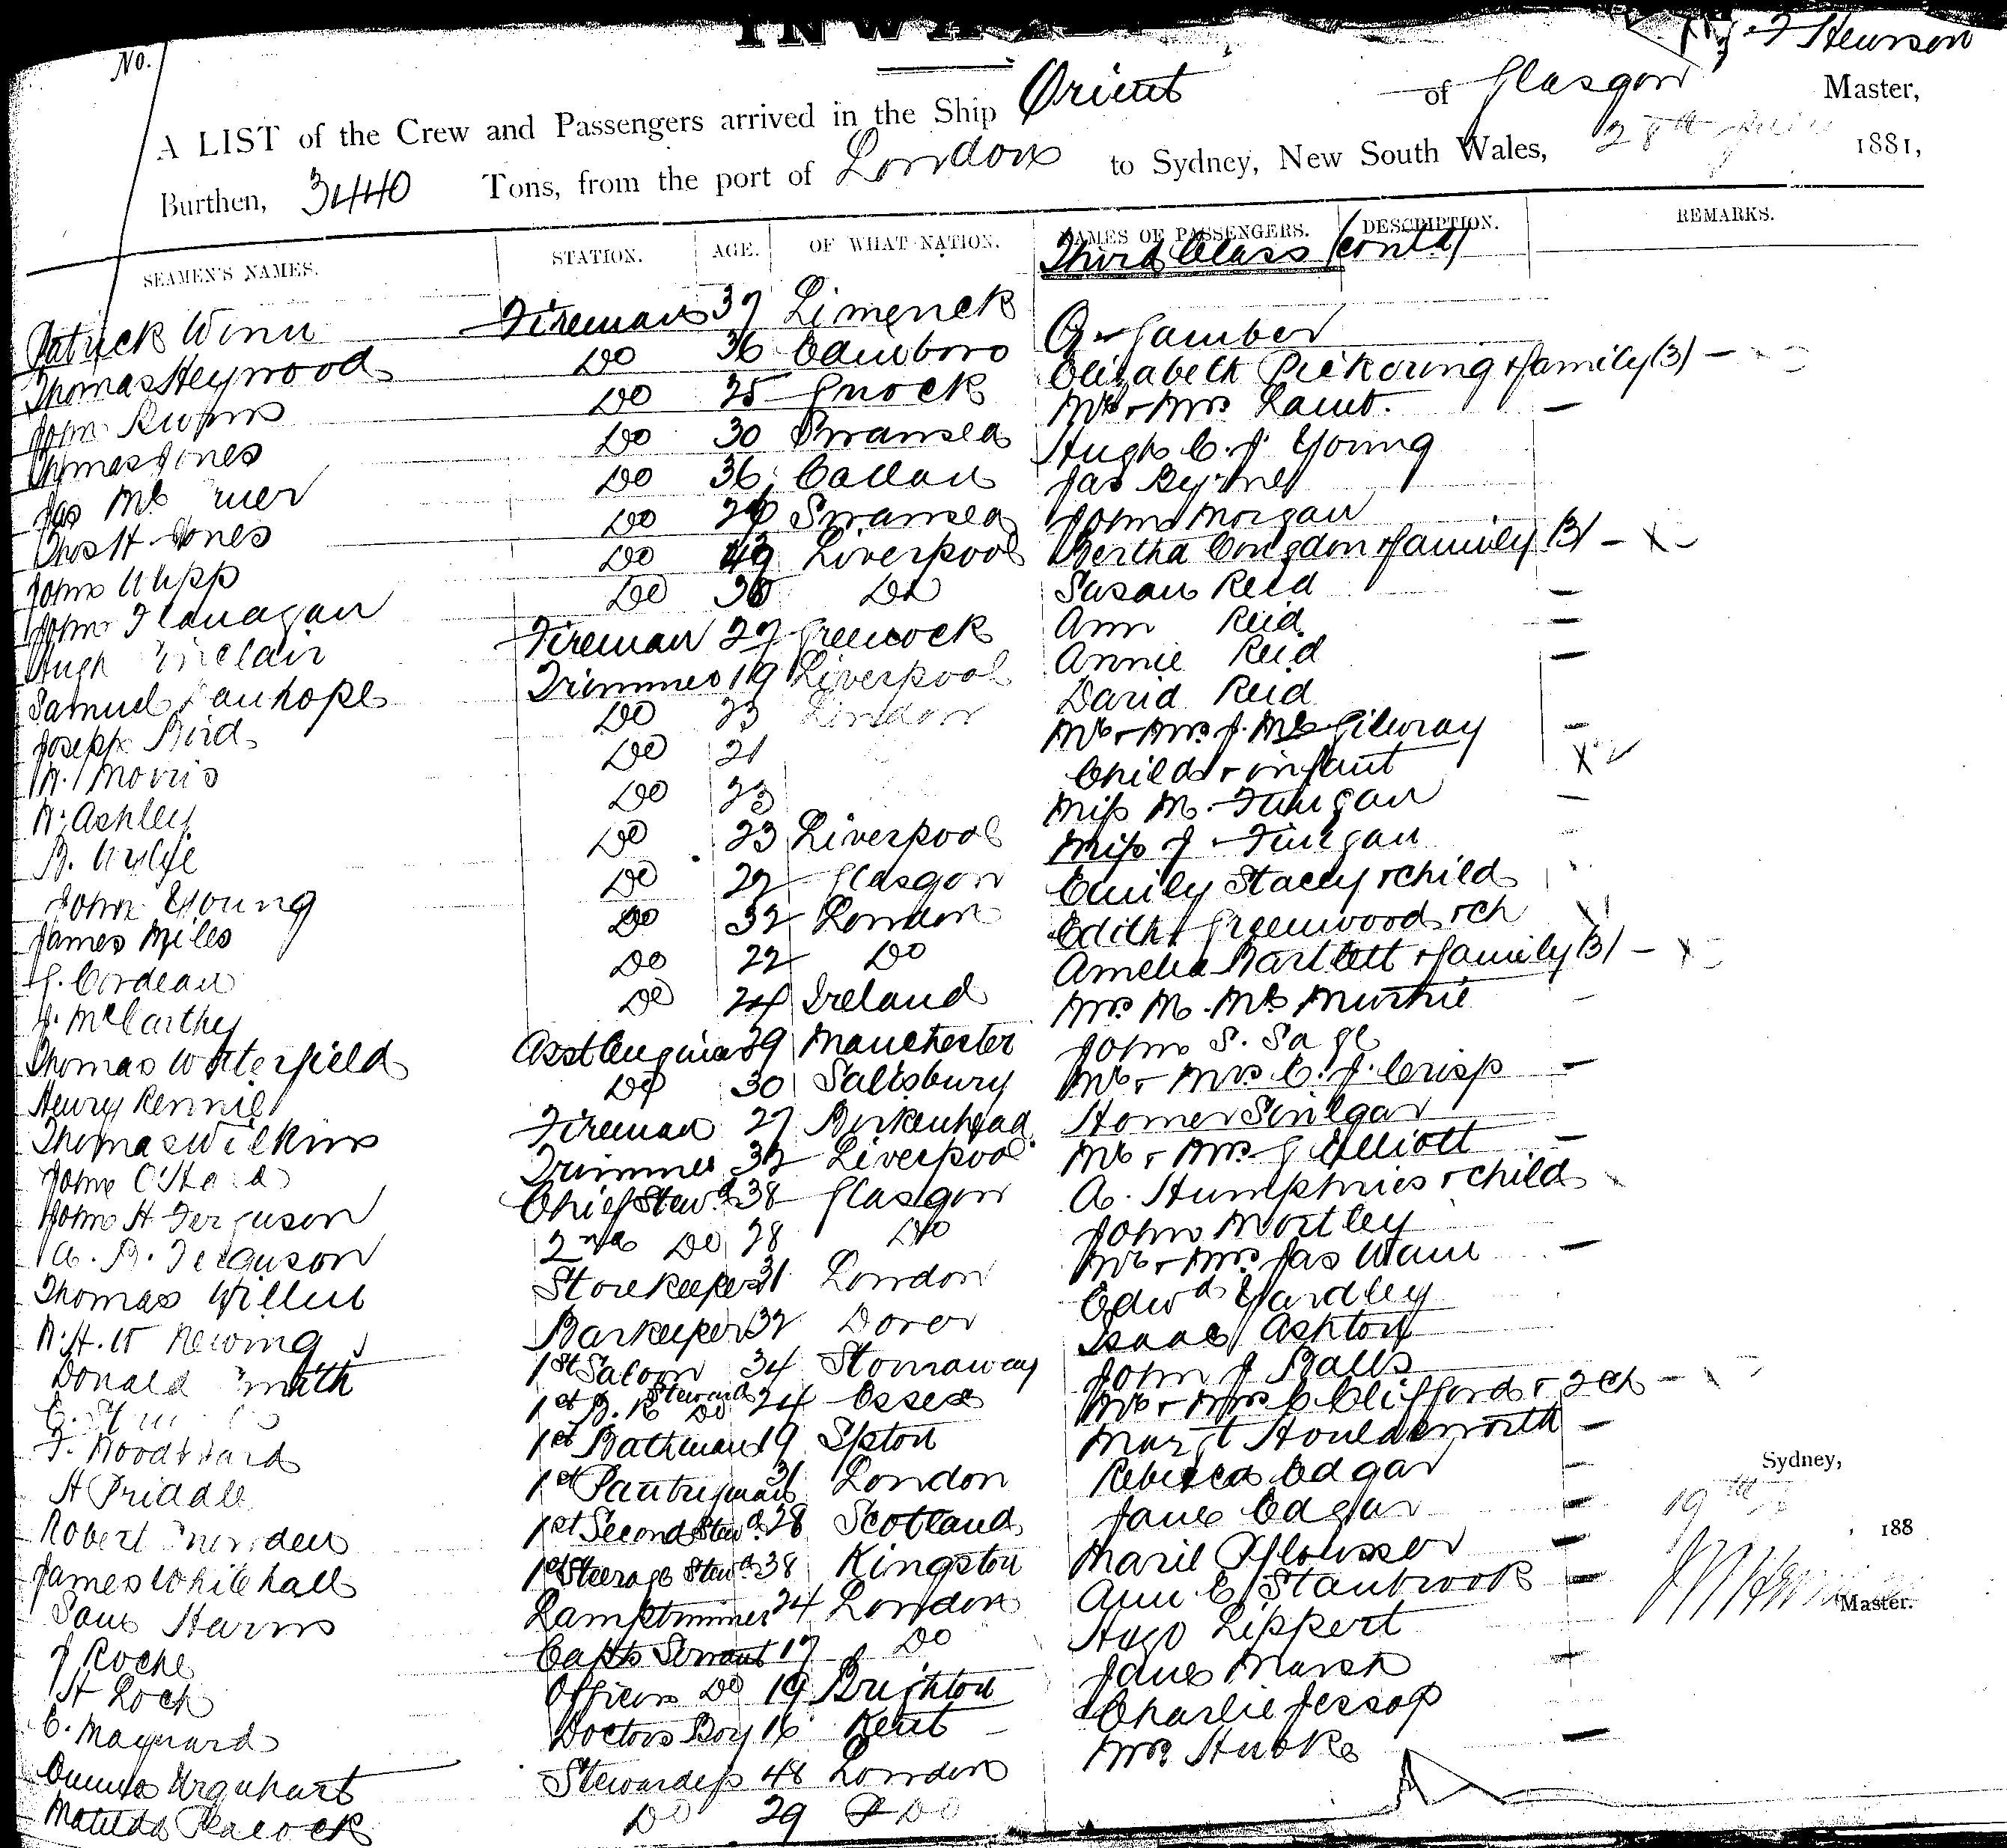 INWARD
No.
Hewson
A LIST of the Crew and Passengers arrived in the Ship Orient of Glasgow Master,
Burthen, 3440 Tons, from the port of London to Sydney, New South Wales, 28th 1881,
SEAMEN'S NAMES. STATION. AGE. OF WHAT NATION. NAMES OF PASSENGERS. DESCRIPTION. REMARKS.
Third Class (contd)
Patrick Winn Fireman 37 Limerick
Thomas Heywood Do 36 Camboro
John Do 25
Thomas Jones Do 30 Swansea
Jas Mc Do 36 Callan
Thos H Jones Do Swansea
John Do 49 Liverpool
John Flanagan Do Do
Hugh Sinclair Fireman 27 Greenock
Samuel Trimmer 19 Liverpool
Joseph Bird Do 23 London
Morris Do 21
Ashley Do 23
B. Do 23 Liverpool
John Young Do 22 Glasgow
James Miles Do 32 London
Cordeau Do 22 Do
McCarthy Do 24 Ireland
Thomas Waterfield Asst Engineer 29 Manchester
Henry Rennie Do 30 Salisbury
Thomas Wilkins Fireman 27 Birkenhead
John O'Hara Trimmer 32 Liverpool
John H Ferguson Chief Stewd 38 Glasgow
A. B. Ferguson 2nd Do 28 Do
Thomas Storekeeper 31 London
Newing Barkeeper 32 Dover
Donald Smith 1st Saloon Steward 34 Stornaway
1st Do 24 Essex
F. Woodward 1st Bathman 19
H Priddle 1st Pantryman 31 London
Robert 1st Second Stewd 28 Scotland
James Whitehall 1st Steerage Stewd 38 Kingston
Harris Lamptrimmer 24 London
J Roche Capts Servant 17 Do
H Loch Officers Do 19 Brighton
C. Maynard Doctors Boy 16 Kent
Urquhart Stewardess 48 London
Matilda Peacock Do 29 Do
Elizabeth Pickering & family (3)
Mr & Mrs Lamb.
Hugh C. J. Young
Jas Byrne
John Morgan
Bertha Congdon & family (3)
Susan Reid
Ann Reid
Annie Reid
David Reid
Mr & Mrs J. McGilvray
Child & infant
Miss M. Finigan
Miss J Finigan
Emily Stacey & child
Edith Greenwood & ch
Amelia Bartlett & family (3)
Mrs M. McMurtrie
John S. Sage
Mr & Mrs C. J. Crisp
Homer
Mr & Mrs G Elliott
A. Humphries & child
John Mortley
Mr & Mrs Jas
Edwd Yardley
Isaac Ashton
John J Balls
Mr & Mrs C Clifford & 2 ch
Margt Houldsworth
Rebecca Edgar
Jane Edgar
Marie
Ann E Stanbrook
Hugo Lippert
Jane Marsh
Charlie Jessop
Mrs
Sydney,
19th
188
Master.